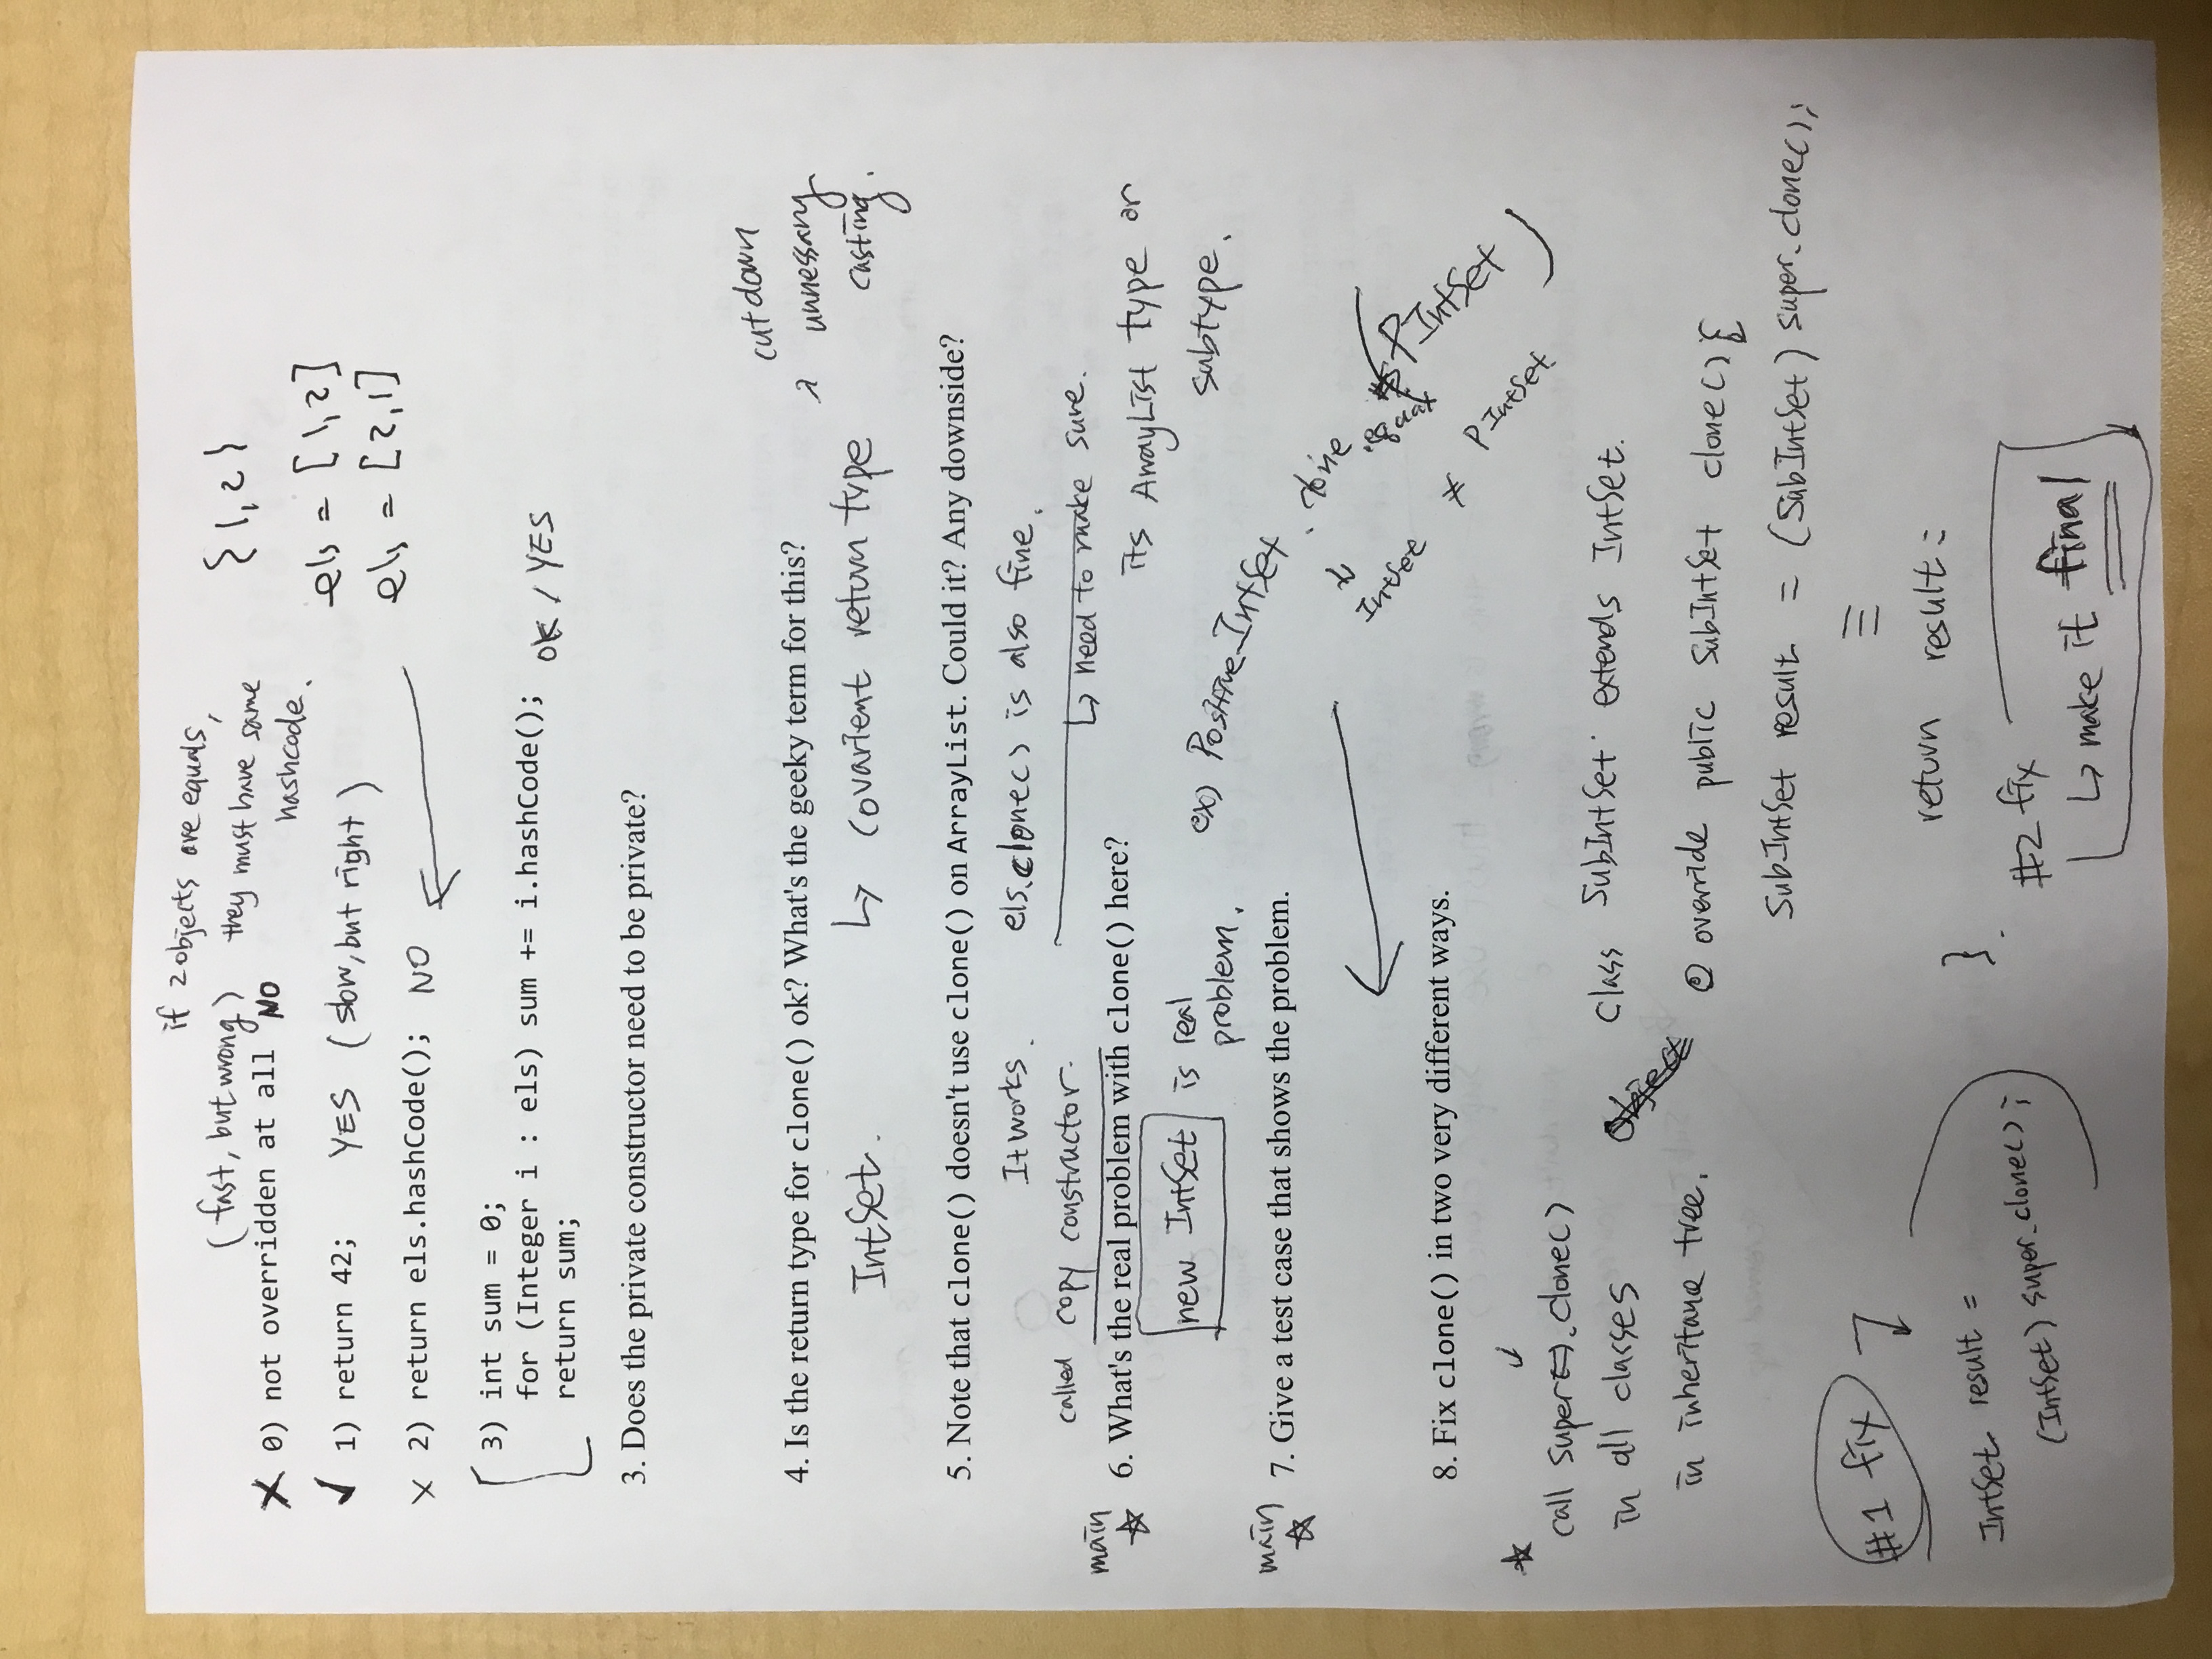 if 2 objects are equals,
(fast, but wrong) they must have same
hashcode.
{1,2}
0) not overridden at all NO
els = [1,2]
els = [2,1]
1) return 42; YES (slow, but right)
2) return els.hashCode(); NO
3) int sum = 0;
for (Integer i : els) sum += i.hashCode();
return sum;
OK / YES
3. Does the private constructor need to be private?
4. Is the return type for clone() ok? What's the geeky term for this?
IntSet.
covarient return type
cut down
unnessary
casting.
5. Note that clone() doesn't use clone() on ArrayList. Could it? Any downside?
It works.
called copy constructor.
els.clone() is also fine.
need to make sure.
its ArrayList type or
subtype.
main
6. What's the real problem with clone() here?
new IntSet is real
problem.
main
7. Give a test case that shows the problem.
ex) Positive IntSet. clone
.equals
(PIntSet)
IntSet ≠ PIntSet.
8. Fix clone() in two very different ways.
call super.clone()
in all classes
in inheritance tree.
Object
Class SubIntSet extends IntSet.
@ override public SubIntSet clone() {
SubIntSet result = (SubIntSet) super.clone();
return result;
}
#1 fix
IntSet result =
(IntSet) super.clone();
#2 fix
make it final